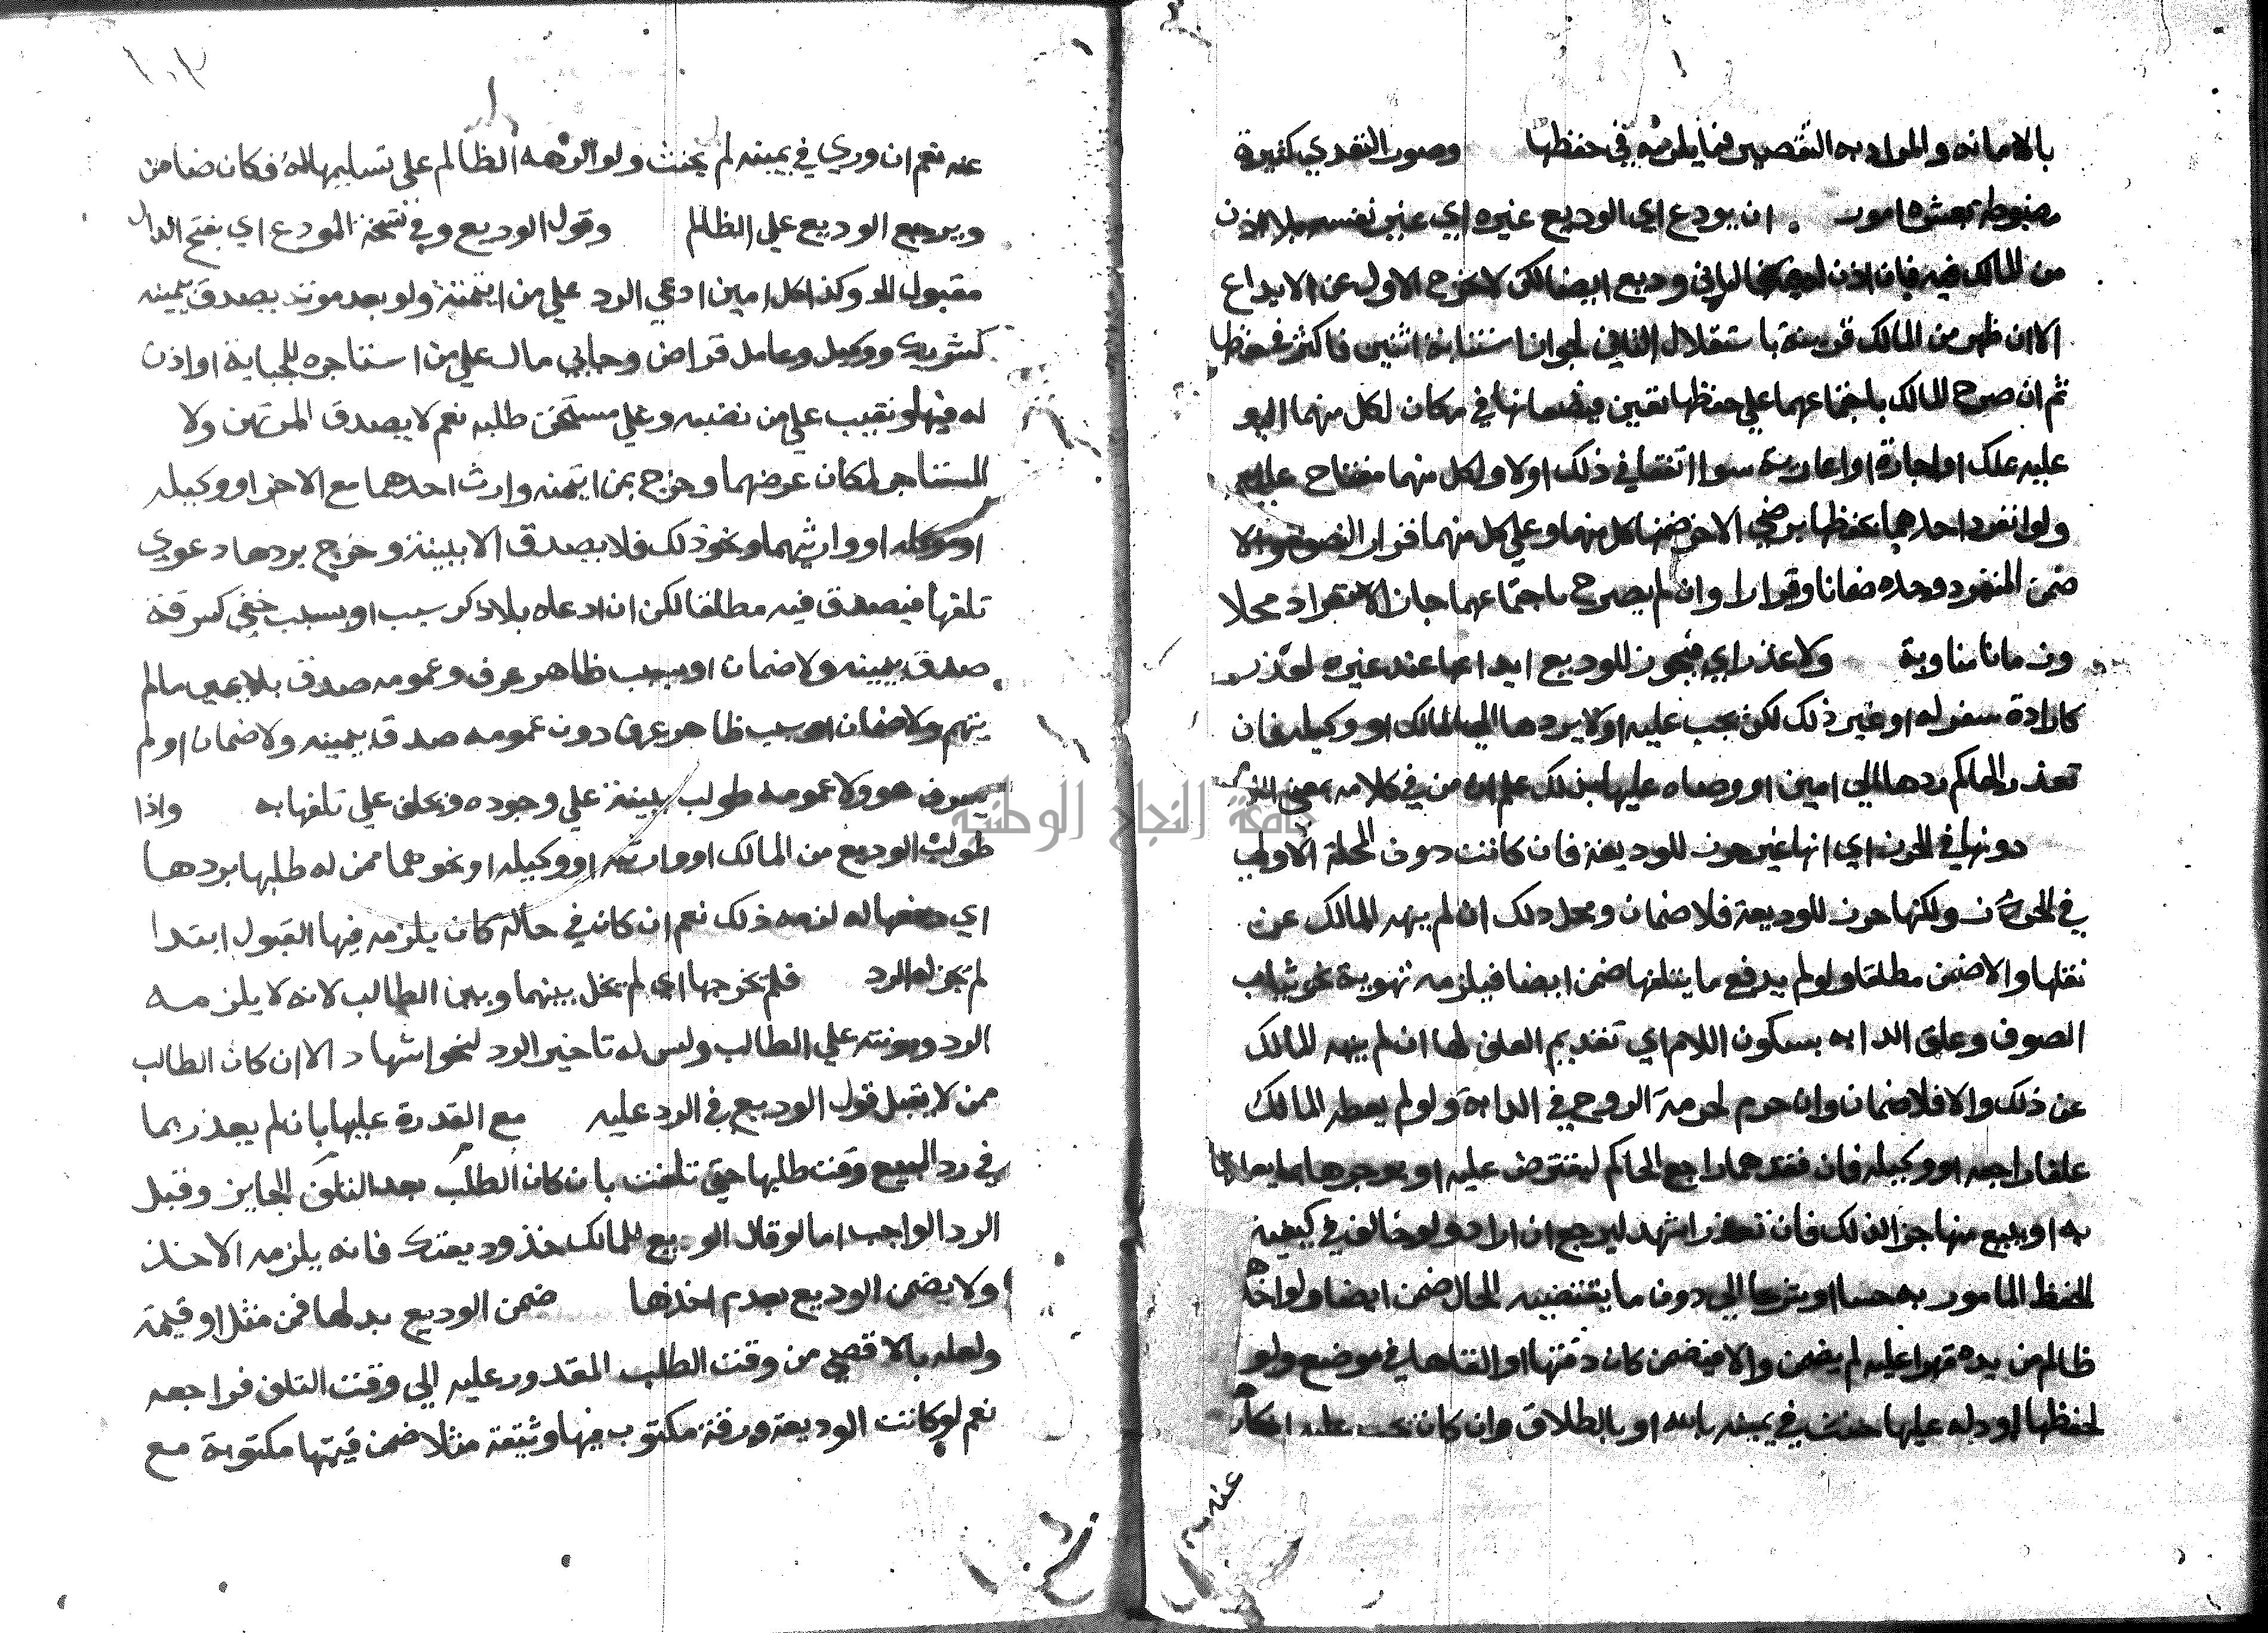 بالامانه والمراد به التقصير فيما يلزمه في حفظها وصور التعدي كثيرة
مضبوطة بعشرة امور ان يودع اي الوديع غيره اي عين نفسه بلا اذن
من المالك فيه فان اذن له فيه فالثاني وديع ايضا لكن لا يخرج الاول عن الايداع
الا ان ظهر من المالك قرينة باستقلال الثاني لجواز استنابة اثنين فاكثر في حفظها
ثم ان صرح المالك باجتماعهما على حفظها تعين فيضعانها في مكان لكل منهما اليد
عليه بملك او اجارة او اعارية سوا اتفقا في ذلك اولا ولكل منهما مفتاح عليه
ولو انفرد احدهما بحفظها برضي الاخر ضمنها كل منهما وعلي كل منهما قرار النصف والا
ضمن المنفرد وحده ضمانا وقرارا وان لم يصرح باجتماعهما جاز الانفراد محلا
وزمانا مناوبة ولا عذر اي فيجوز للوديع ايداعها عند غيره لعذر
كارادة سفر له او غير ذلك لكن يجب عليه اولا يردها الي المالك او وكيله فان
تعذر الحاكم ردها الي امين او وصاه عليها بذلك علم ان من في كلامه بمعني
دونها في الحرز اي انها غير حرز للوديعة فان كانت دون المحلة الاولي
في الحرز ولكنها حرز للوديعة فلا ضمان ومحل ذلك ان لم ينهه المالك عن
نقلها والا ضمن مطلقا ولو لم يدفع ما يتلفها ضمن ايضا فيلزمه تهوية نحو ثياب
الصوف وعلف الدابه بسكون اللام اي تقديم العلف لها ان لم ينهه المالك
عن ذلك والا فلا ضمان وان حرم لحرمة الروح في الدابة ولو لم يعطه المالك
علفا راجعه او وكيله فان فقدهما راجع الحاكم ليقترض عليه او يوجرها
به او يبيع منها جزا لذلك فان تعذر اشهد ليرجع ان اراد ولو خالف في كيفية
الحفظ المامور به حسا او شرعا الي دون ما يقتضيه الحال ضمن ايضا ولو اخذها
ظالم من يده قهرا عليه لم يضمن والا فيضمن كان دفنها او القاها في موضع ولو
لحفظها او دله عليها حنث في يمينه بالله او بالطلاق وان كان يجب عليه انكار
عنه
١٠٣
عنه نعم ان وري في يمينه لم يحنث ولو اكرهه الظالم علي تسليمها له فكان ضامن
ويرجع الوديع علي الظالم وقول الوديع وفي نسخة المودع اي بفتح الدال
مقبول الد وكذا كل امين ادعي الرد علي من ايتمنه ولو بعد موته يصدق بيمينه
كشريك ووكيل وعامل قراض وجابي مال علي من استاجره للجباية او اذن
له فيها ونقيب علي من نصبه وعلي مستحق طلبه نعم لا يصدق المرتهن ولا
المستاجر لمكان غرضهما وخرج بمن ايتمنه وارث احدهما مع الاخر او وكيله
او موكله او وارثيهما ونحو ذلك فلا يصدق الا ببينة وخرج بردها دعوي
تلفها فيصدق فيه مطلقا لكن ان ادعاه بلا ذكر سبب او بسبب خفي كسرقة
صدق بيمينه ولا ضمان او بسبب ظاهر عرف وعمومه صدق بلا يمين ما لم
يتهم ولا ضمان او بسبب ظاهر عرف دون عمومه صدق بيمينه ولا ضمان او لم
يعرف هو ولا عمومه طولب ببينة علي وجوده ويحلف علي تلفها به واذا
طولب الوديع من المالك او وارثه او وكيله او نحوهما ممن له طلبها بردها
اي دفعها له لزمه ذلك نعم ان كان في حالة كان يلزمه فيها القبول ابتدا
لم يجز له الرد فلم يخرجها اي لم يخل بينها وبين الطالب لانه لا يلزمه
الرد ومونته علي الطالب وليس له تاخير الرد لنحو اشهاد الا ان كان الطالب
ممن لا يقبل قول الوديع في الرد عليه مع القدرة عليها بان لم يعذر بما
في رد المبيع وقت طلبها حتي تلفت بان كان الطلب بعد التلف الجايز وقبل
الرد الواجب اما لو قال الوديع للمالك خذ وديعتك فانه يلزمه الاخذ
ولا يضمن الوديع بعدم اخذها ضمن الوديع بدلها من مثل او قيمة
ولعله بالاقصي من وقت الطلب المقدور عليه الي وقت التلف فراجعه
نعم لو كانت الوديعة ورقة مكتوب فيها وثيقة مثلا ضمن قيمتها مكتوبة مع
جامعة النجاح الوطنية